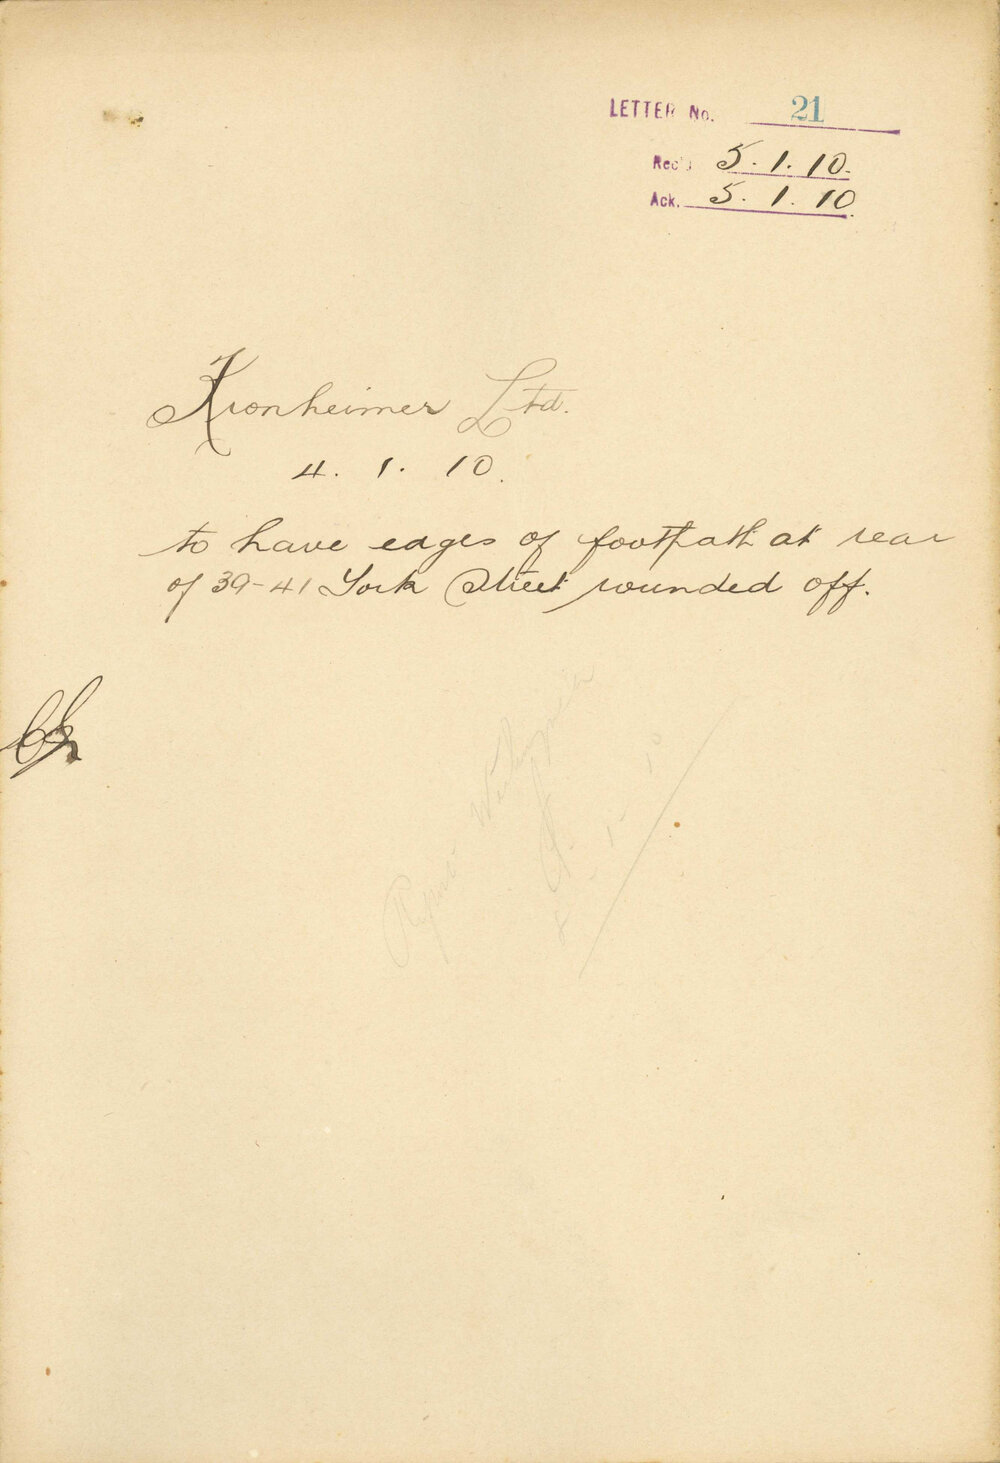 LETTER No. 21
Rec'd 5.1.10.
Ack. 5.1.10.
Kronheimer Ltd.
4.1.10.
to have edges of footpath at rear
of 39-41 York Street rounded off.